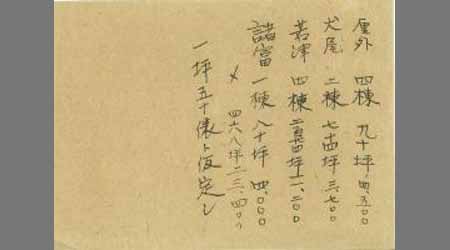 屋外 四棟 九十坪 四、五〇〇
犬尾 二棟 七十四坪 三、七〇〇
若津 四棟 二百廿四坪 一一、二〇〇
諸富 一棟 八十坪 四、〇〇〇
〆 四六八坪 二三、四〇〇
一坪五十俵ト仮定シ